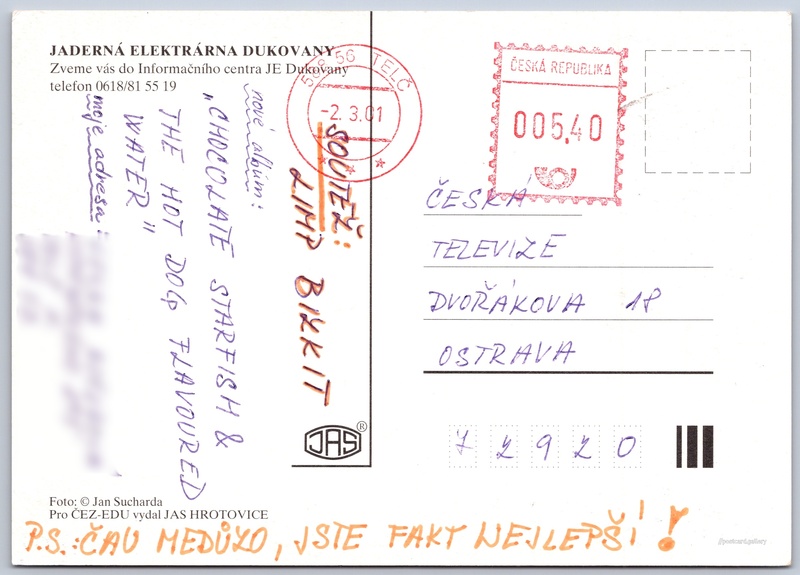 JADERNÁ ELEKTRÁRNA DUKOVANY
Zveme vás do Informačního centra JE Dukovany
telefon 0618/81 55 19
588 56 TELČ
-2.3.01
ČESKÁ REPUBLIKA
005,40
SOUTĚŽ:
LIMP BIZKIT
nové album:
„CHOCOLATE STARFISH &
THE HOT DOG FLAVOURED
WATER"
moje adresa:
ČESKÁ
TELEVIZE
DVOŘÁKOVA 18
OSTRAVA
72920
JAS ®
Foto: © Jan Sucharda
Pro ČEZ-EDU vydal JAS HROTOVICE
P.S.: ČAU MEDŮZO, JSTE FAKT NEJLEPŠÍ!
@postcard.gallery